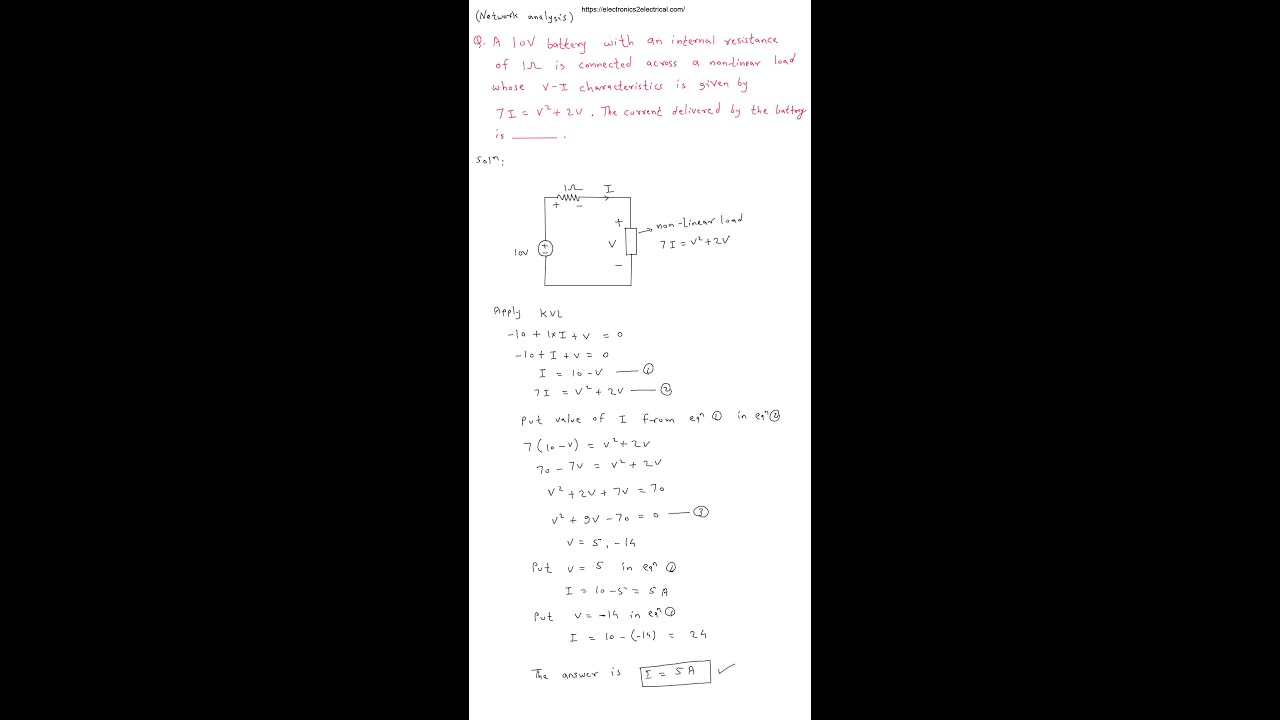 https://electronics2electrical.com/
(Network analysis)
Q. A 10V battery with an internal resistance
of 1Ω is connected across a nonlinear load
whose V-I characteristics is given by
7I = V² + 2V. The current delivered by the battery
is ______.
Solⁿ:
1Ω I
+ −
+
non-linear load
7I = V² + 2V
V
10V
+
−
−
Apply KVL
-10 + 1×I + V = 0
-10 + I + V = 0
I = 10 - V —— ①
7I = V² + 2V —— ②
Put value of I from eqⁿ ① in eqⁿ ②
7(10-V) = V² + 2V
70 - 7V = V² + 2V
V² + 2V + 7V = 70
V² + 9V - 70 = 0 —— ③
V = 5, -14
Put V = 5 in eqⁿ ①
I = 10 - 5 = 5 A
Put V = -14 in eqⁿ ①
I = 10 - (-14) = 24
The answer is I = 5 A ✓